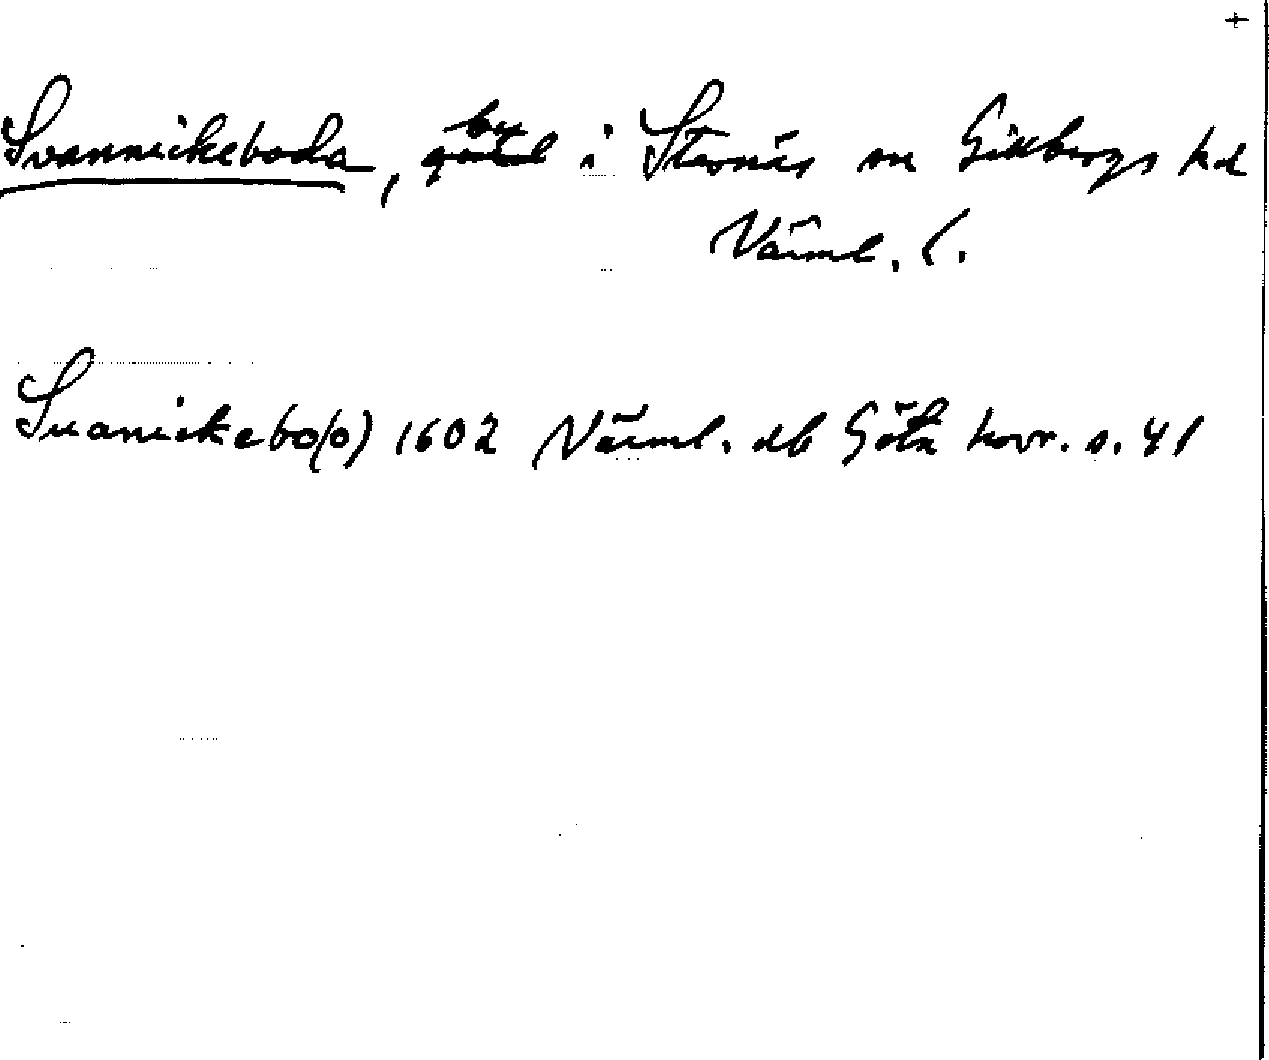 +
Svannickeboda, by gård i Stavnäs sn Gillbergs hd
Värml. l.
Suanickebo(o) 1602 Värml. db Göta hovr. s. 41